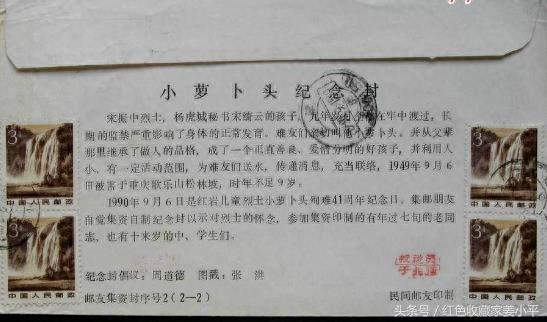 小萝卜头纪念封
宋振中烈士，杨虎城秘书宋绮云的孩子，九年岁月全部在牢中渡过，长
期的监禁严重影响了身体的正常发育。难友们亲切叫他小萝卜头。并从父辈
那里继承了做人的品格，成了一个正直善良、爱憎分明的好孩子，并利用人
小、有一定活动范围，为难友们送水，传递消息，充当联络，1949年9月6
日被害于重庆歌乐山松林坡，时年不足9岁。
1990年9月6日是红岩儿童烈士小萝卜头殉难41周年纪念日。集邮朋友
自觉集资自制纪念封以示对烈士的怀念，参加集资印制的有年过七旬的老同
志，也有十来岁的中、学生们。
纪念封倡议：周道德 图戳：张 洪
邮友集资封序号2(2—2)
民间邮友印制
3分
中国人民邮政
3分
中国人民邮政
3分
中国人民邮政
3分
中国人民邮政
头条号／红色收藏家姜小平